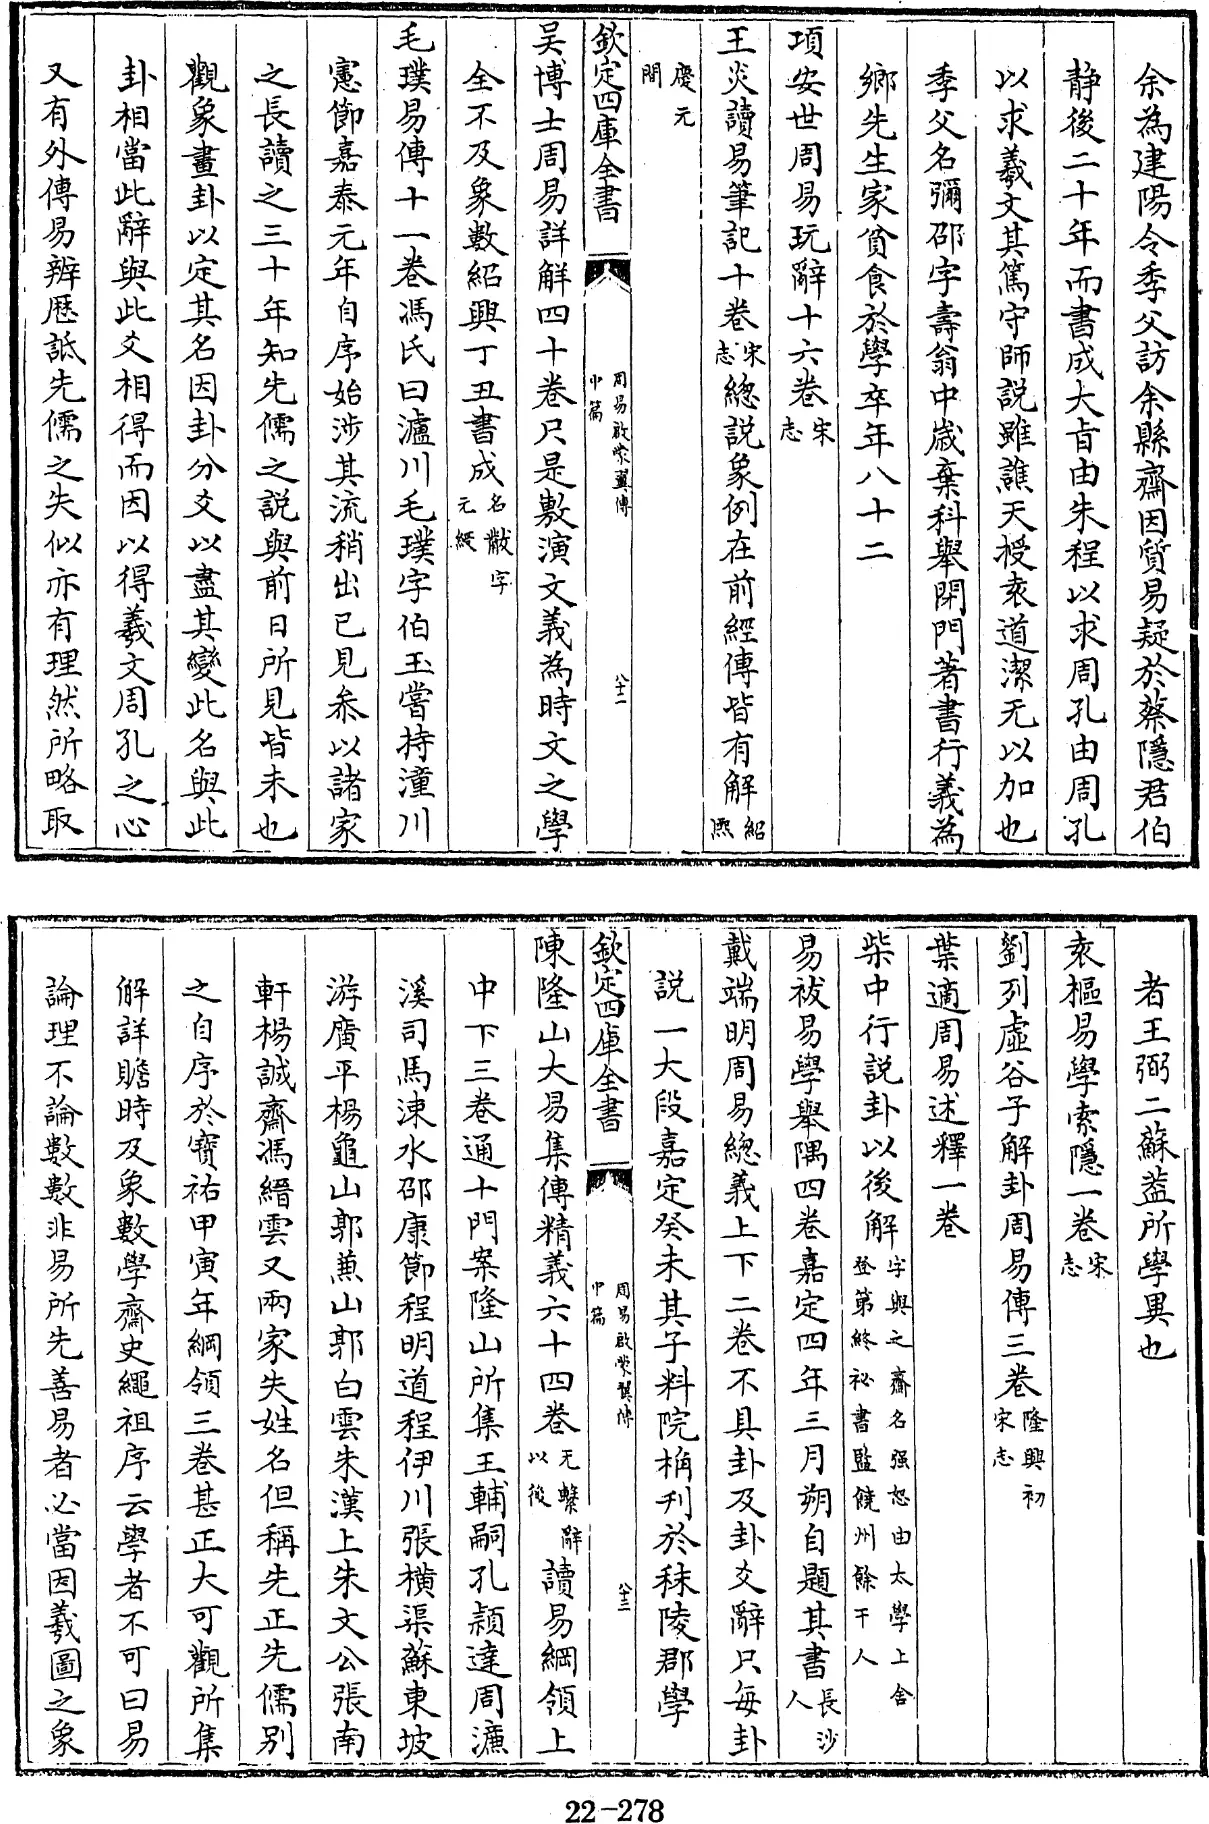 余為建陽令季父訪余縣齋因質易疑於蔡隱君伯
静後二十年而書成大㫖由朱程以求周孔由周孔
以求羲文其篤守師説雖譙天授袁道潔无以加也
季父名彌邵字壽翁中嵗棄科舉閉門著書行義為
鄉先生家貧食於學卒年八十二
項安世周易玩辭十六卷宋志
王炎讀易筆記十卷宋志總説象例在前經傳皆有解紹熈
慶元間
欽定四庫全書 周易啟蒙翼傳中篇 八十二
吴博士周易詳解四十卷只是敷演文義為時文之學
全不及象數紹興丁丑書成名散字元紙
毛璞易傳十一卷馮氏曰瀘川毛璞字伯玉嘗持潼川
憲節嘉泰元年自序始涉其流稍出已見叅以諸家
之長讀之三十年知先儒之説與前日所見皆未也
觀象畫卦以定其名因卦分爻以盡其變此名與此
卦相當此辭與此爻相得而因以得羲文周孔之心
又有外傳易辨歴詆先儒之失似亦有理然所略取
者王弼二蘇葢所學異也
袁樞易學索隱一卷宋志
劉列虚谷子解卦周易傳三卷隆興初宋志
葉適周易述釋一卷
柴中行説卦以後解字與之齋名强恕由太學上舍登第終祕書監饒州餘干人
易祓易學舉隅四卷嘉定四年三月朔自題其書長沙人
戴端明周易總義上下二卷不具卦及卦爻辭只每卦
説一大段嘉定癸未其子料院桷刋於秣陵郡學
欽定四庫全書 周易啟蒙翼傳中篇 八十三
陳隆山大易集傳精義六十四卷无繫辭以後讀易綱領上
中下三卷通十門案隆山所集王輔嗣孔頴達周濂
溪司馬涑水邵康節程明道程伊川張横渠蘇東坡
游廣平楊龜山郭兼山郭白雲朱漢上朱文公張南
軒楊誠齋馮縉雲又兩家失姓名但稱先正先儒别
之自序於寳祐甲寅年綱領三卷甚正大可觀所集
解詳贍時及象數學齋史繩祖序云學者不可曰易
論理不論數數非易所先善易者必當因羲圖之象
22-278